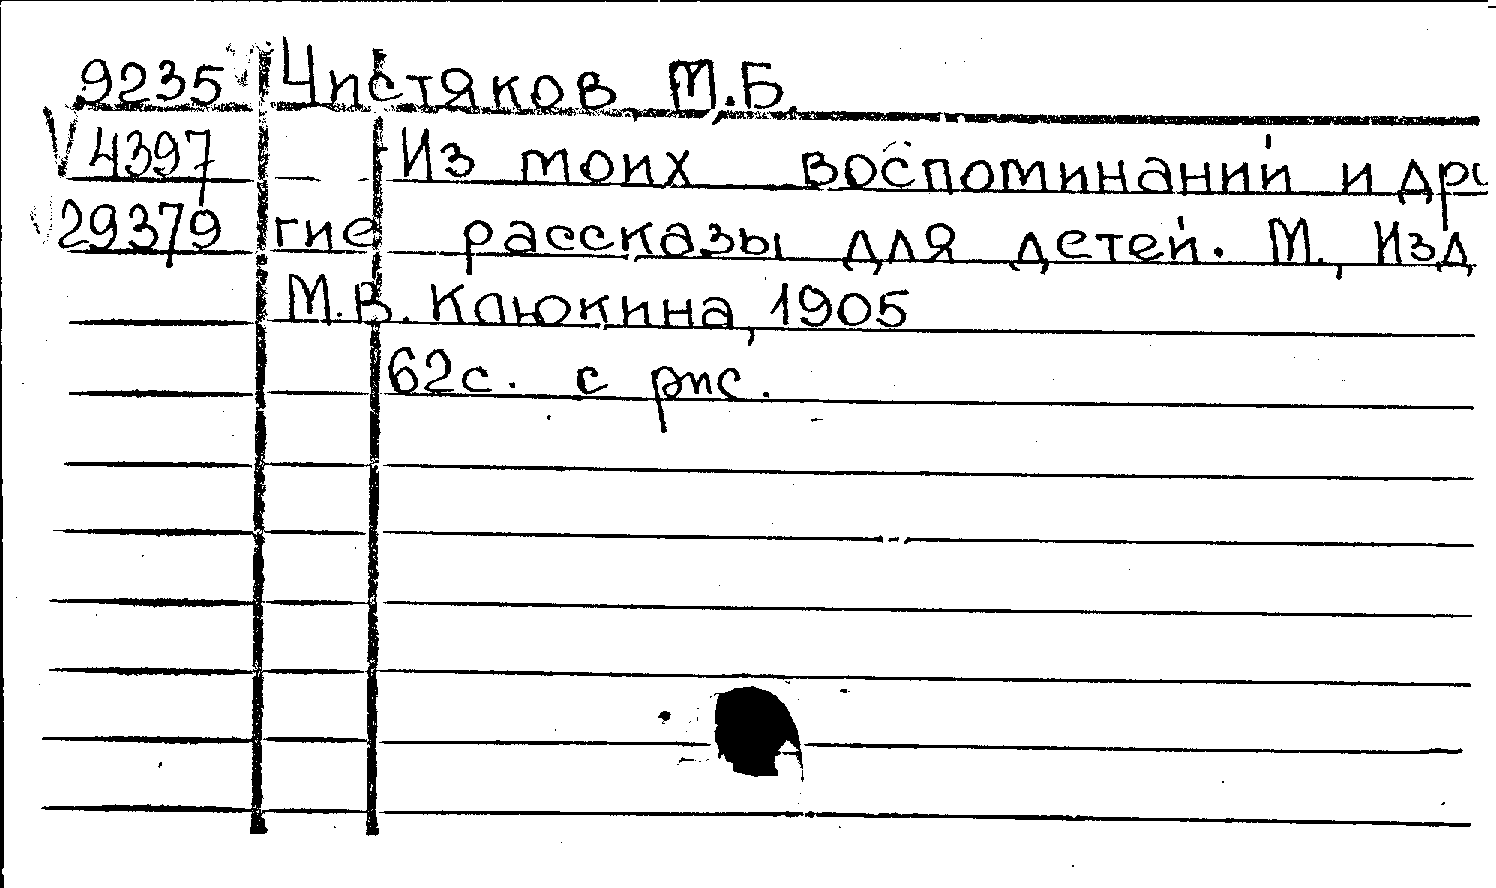 9235 Чистяков М.Б.
√ 4397 Из моих воспоминаний и дру
29379 гие рассказы для детей. М., Изд
М.В. Клюкина, 1905
62с. с рис.